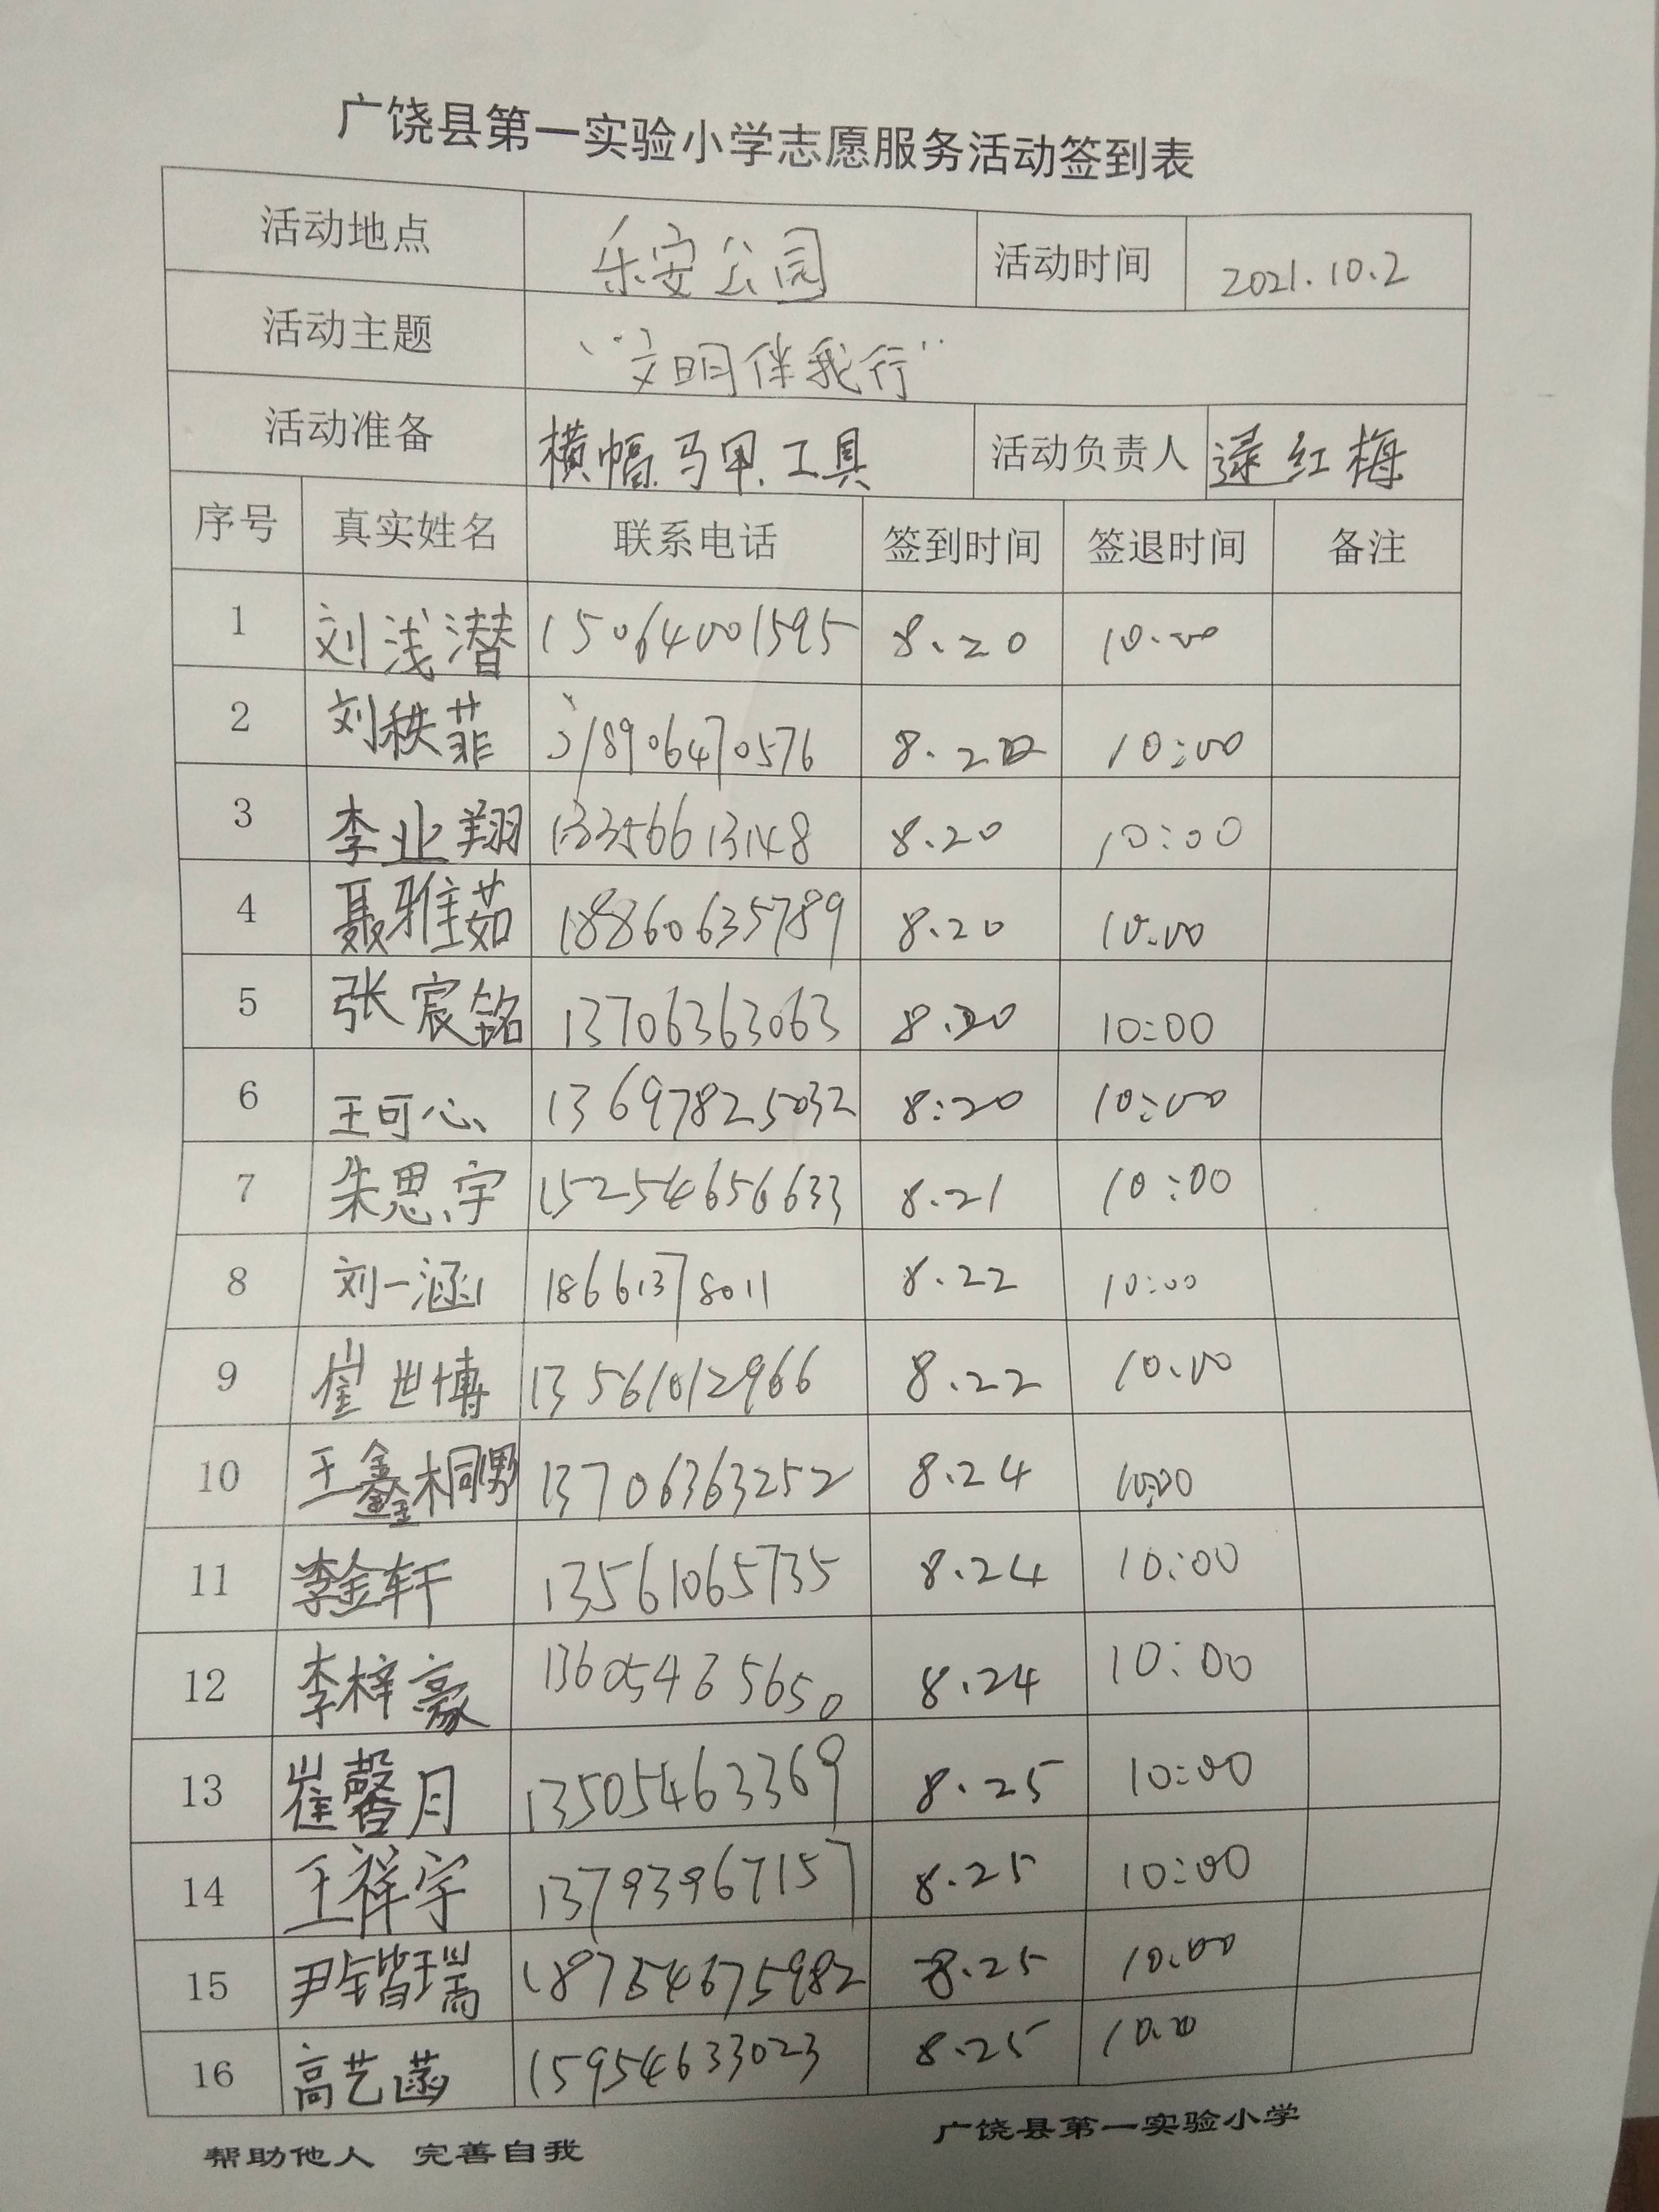 广饶县第一实验小学志愿服务活动签到表
活动地点 乐安公园 活动时间 2021.10.2
活动主题 “文明伴我行”
活动准备 横幅、马甲、工具 活动负责人 逯红梅
序号 真实姓名 联系电话 签到时间 签退时间 备注
1 刘浅潜 15064001595 8.20 10.00
2 刘秩菲 18906470576 8.20 10:00
3 李业翔 13356613148 8.20 10:00
4 聂雅茹 18860635789 8.20 10.00
5 张宸铭 13706363063 8.20 10:00
6 王可心 13697825032 8:20 10:00
7 朱思宇 15254656633 8.21 10:00
8 刘一涵 18661378011 8.22 10:00
9 崔世博 13561012966 8.22 10.00
10 王鑫桐男 13706363252 8.24 10:00
11 李金轩 13561065735 8.24 10:00
12 李梓豪 13605465650 8.24 10:00
13 崔馨月 13505463369 8.25 10:00
14 王祥宇 13793967157 8.25 10:00
15 尹锴瑞 18754675982 8.25 10.00
16 高艺菡 15954633023 8.25 10.00
帮助他人 完善自我 广饶县第一实验小学